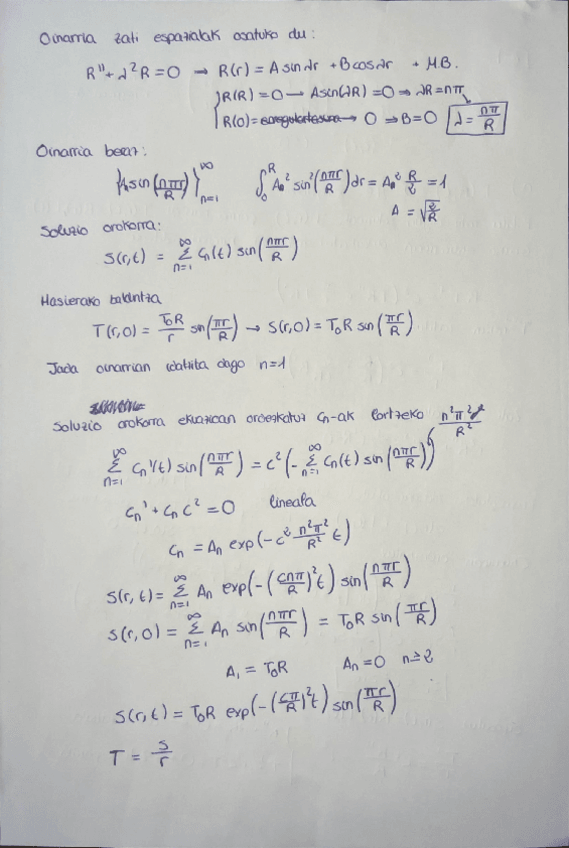 Oinarria zati espazialak osatuko du:
R'' + λ²R = 0 → R(r) = A sin λr + B cos λr + MB.
R(R) = 0 → A sin(λR) = 0 → λR = nπ
R(0) = 0 → B = 0 λ = nπ/R
Oinarria beraz:
{A sin(nπr/R)}_{n=1}^∞ ∫₀^R Aₙ² sin²(nπr/R) dr = Aₙ² R/2 = 1
A = √(2/R)
Soluzio orokorra:
S(r,t) = Σ_{n=1}^∞ cₙ(t) sin(nπr/R)
Hasierako baldintza
T(r,0) = T₀R/r sin(πr/R) → S(r,0) = T₀R sin(πr/R)
Jada oinarrian idatzita dago n=1
Soluzio orokorra ekuazioan ordezkatuz cₙ-ak lortzeko n²π²/R²
Σ_{n=1}^∞ cₙ'(t) sin(nπr/R) = c² (- Σ_{n=1}^∞ cₙ(t) sin(nπr/R))
cₙ' + cₙ c² = 0 lineala
cₙ = Aₙ exp(-c² n²π²/R² t)
S(r,t) = Σ_{n=1}^∞ Aₙ exp(-(cnπ/R)² t) sin(nπr/R)
S(r,0) = Σ_{n=1}^∞ Aₙ sin(nπr/R) = T₀R sin(πr/R)
A₁ = T₀R Aₙ = 0 n ≥ 2
S(r,t) = T₀R exp(-(cπ/R)² t) sin(πr/R)
T = S/r